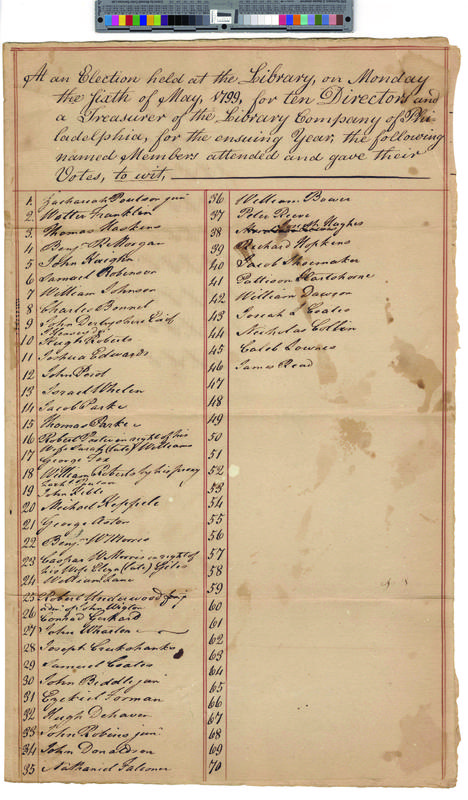 At an Election held at the Library, on Monday
the Sixth of May, 1799, for ten Directors and
a Treasurer of the Library Company of Phi-
ladelphia, for the ensuing Year, the following
named Members attended and gave their
Votes, to wit,
1. Zachariah Poulson junr
2. Walter Franklin
3 Thomas Haskins
4 Benjn R Morgan
5 John Vaughn
6 Samuel Robinson
7 William Johnson
8 Charles Bonnel
9 John Derbyshire
10 Hugh Roberts
11 Joshua Edwards
12 John Perot
13 Israel Whelen
14 Jacob Parke
15 Thomas Parke
16 Robert in right of his
Wife Sarah (late) Williams
17 George Fox
18 William Roberts by his proxy
19 John Kible
20 Michael Keppele
21 George Aston
22 Benjn W Morris
23 Caspar W Morris in right of
his Wife Eliza (late) Giles
24 William Lane
25 Robert Underwood
admr of John Wigton
26 Conrad Gerhard
27 John Wharton
28 Joseph Cruckshank
29 Samuel Coates
30 John Biddle junr
31 Ezekiel Forman
32 Hugh Dehaven
33 John Robins junr
34 John Donaldson
35 Nathaniel Falconer
36 William Bower
37 Peter Reeve
38 Hughes
39 Richard Hopkins
40 Jacob Shoemaker
41 Pattison Hartshorne
42 William Dawson
43 Josiah L Coates
44 Nicholas Collin
45 Caleb Lownes
46 James Read
47
48
49
50
51
52
53
54
55
56
57
58
59
60
61
62
63
64
65
66
67
68
69
70